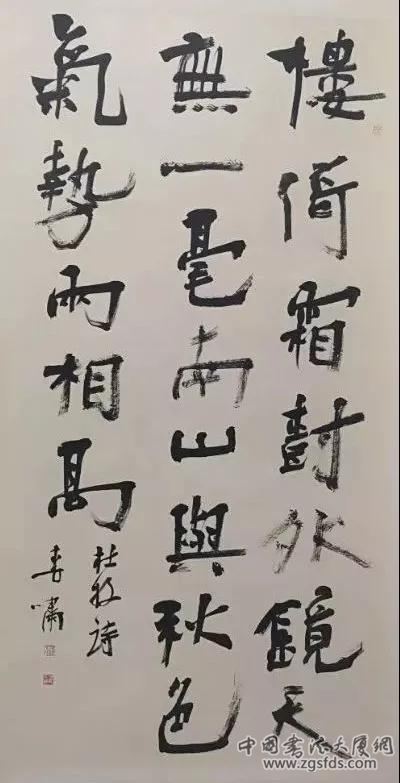 樓倚霜樹外鏡天
無一毫南山與秋色
氣勢兩相高
杜牧詩
嘯
中國書法大廈網
www.zgsfds.com